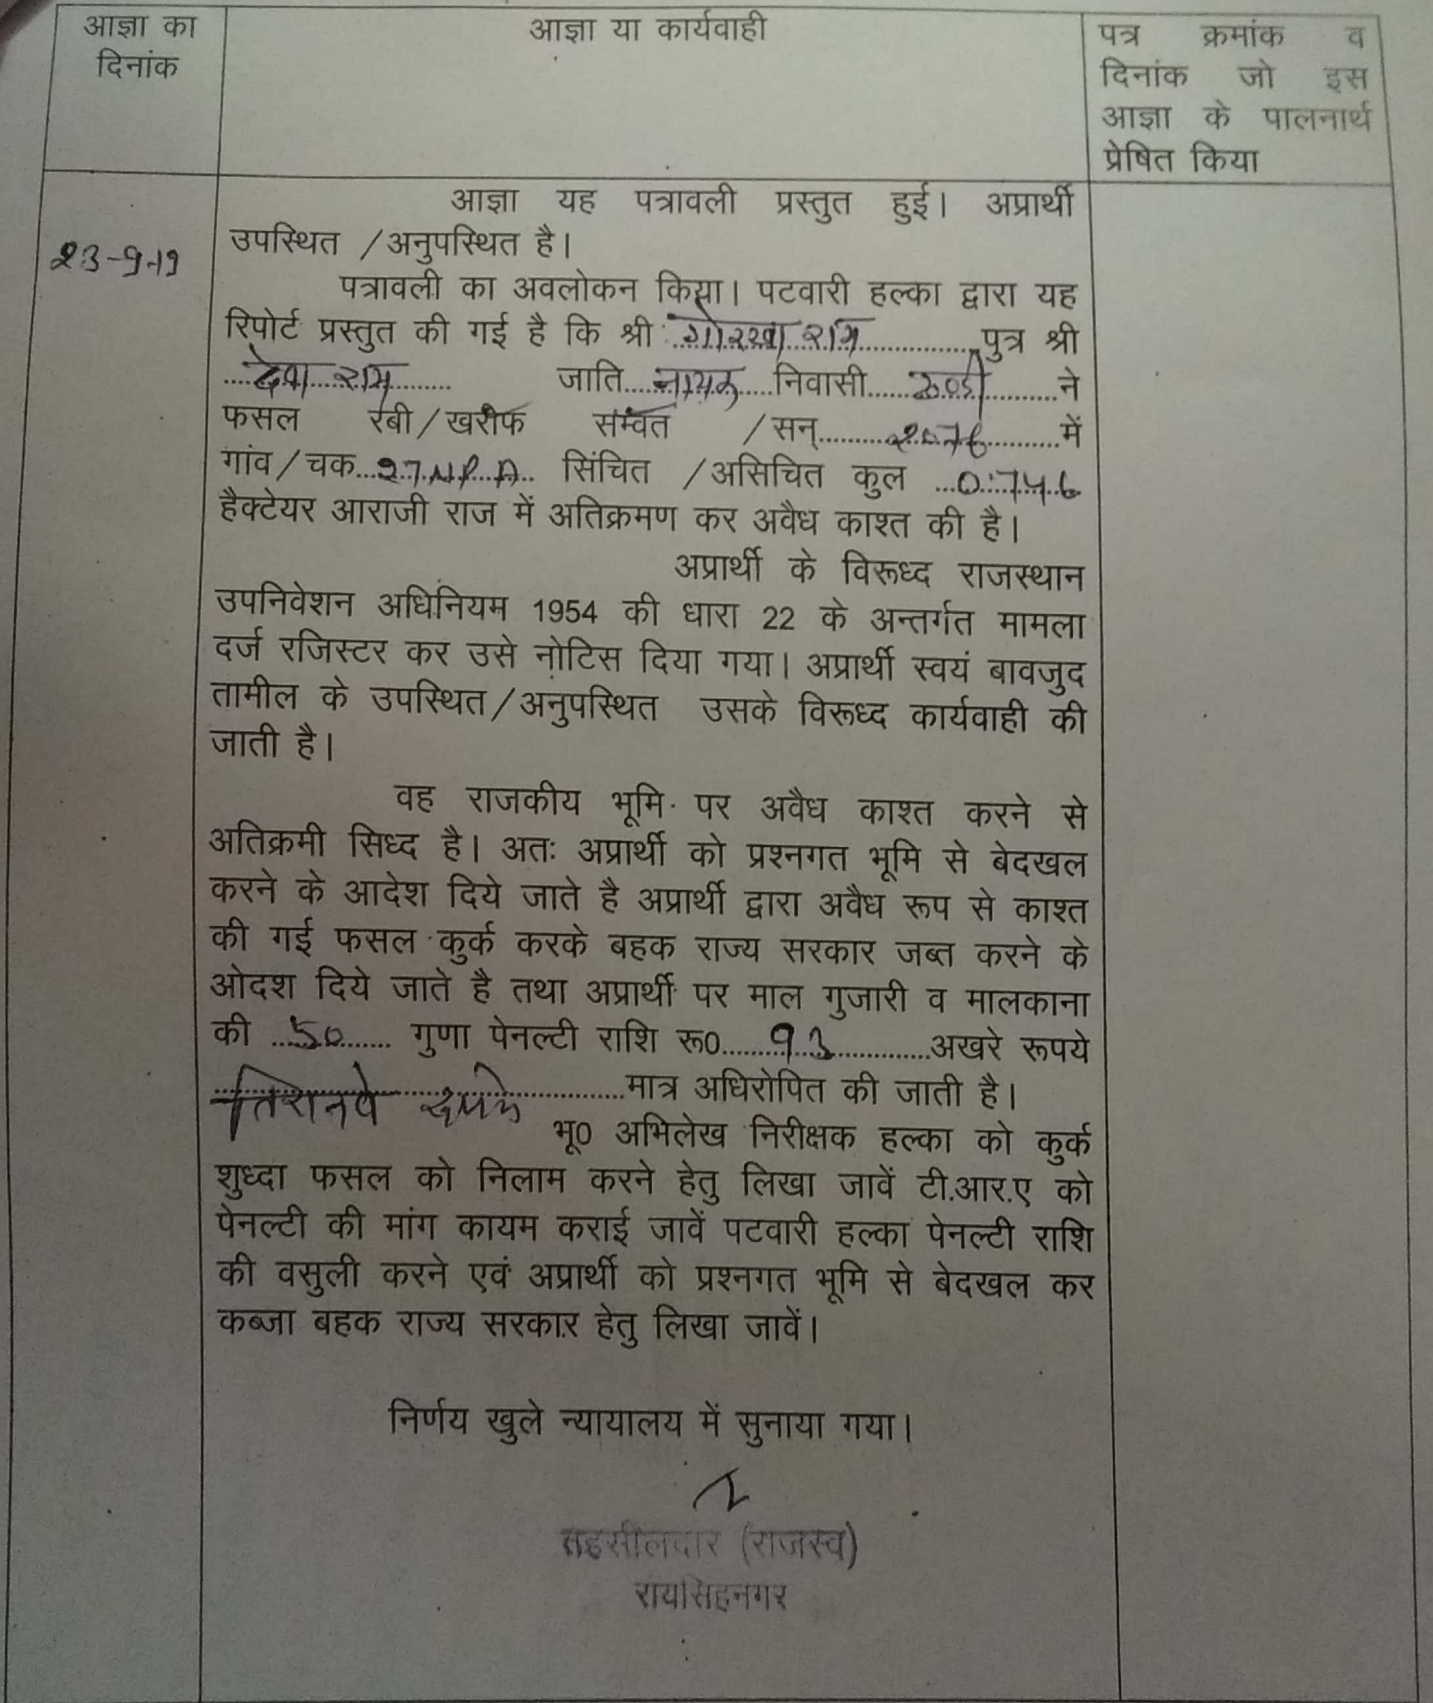 आज्ञा का
दिनांक
आज्ञा या कार्यवाही
पत्र क्रमांक व
दिनांक जो इस
आज्ञा के पालनार्थ
प्रेषित किया
23-9-19
आज्ञा यह पत्रावली प्रस्तुत हुई। अप्रार्थी
उपस्थित /अनुपस्थित है।
पत्रावली का अवलोकन किया। पटवारी हल्का द्वारा यह
रिपोर्ट प्रस्तुत की गई है कि श्री गोरखा राम पुत्र श्री
देवा राम जाति नायक निवासी ने
फसल रबी/खरीफ सम्वत /सन् 2076 में
गांव/चक 27 NP A सिंचित /असिचित कुल 0.746
हैक्टेयर आराजी राज में अतिक्रमण कर अवैध काश्त की है।
अप्रार्थी के विरूध्द राजस्थान
उपनिवेशन अधिनियम 1954 की धारा 22 के अन्तर्गत मामला
दर्ज रजिस्टर कर उसे नोटिस दिया गया। अप्रार्थी स्वयं बावजुद
तामील के उपस्थित/अनुपस्थित उसके विरूध्द कार्यवाही की
जाती है।
वह राजकीय भूमि पर अवैध काश्त करने से
अतिक्रमी सिध्द है। अतः अप्रार्थी को प्रश्नगत भूमि से बेदखल
करने के आदेश दिये जाते है अप्रार्थी द्वारा अवैध रूप से काश्त
की गई फसल कुर्क करके बहक राज्य सरकार जब्त करने के
ओदश दिये जाते है तथा अप्रार्थी पर माल गुजारी व मालकाना
की 50 गुणा पेनल्टी राशि रू0 93 अखरे रूपये
तिरानवे रूपये मात्र अधिरोपित की जाती है।
भू0 अभिलेख निरीक्षक हल्का को कुर्क
शुध्दा फसल को निलाम करने हेतु लिखा जावें टी.आर.ए को
पेनल्टी की मांग कायम कराई जावें पटवारी हल्का पेनल्टी राशि
की वसुली करने एवं अप्रार्थी को प्रश्नगत भूमि से बेदखल कर
कब्जा बहक राज्य सरकार हेतु लिखा जावें।
निर्णय खुले न्यायालय में सुनाया गया।
तहसीलदार (राजस्व)
रायसिहनगर